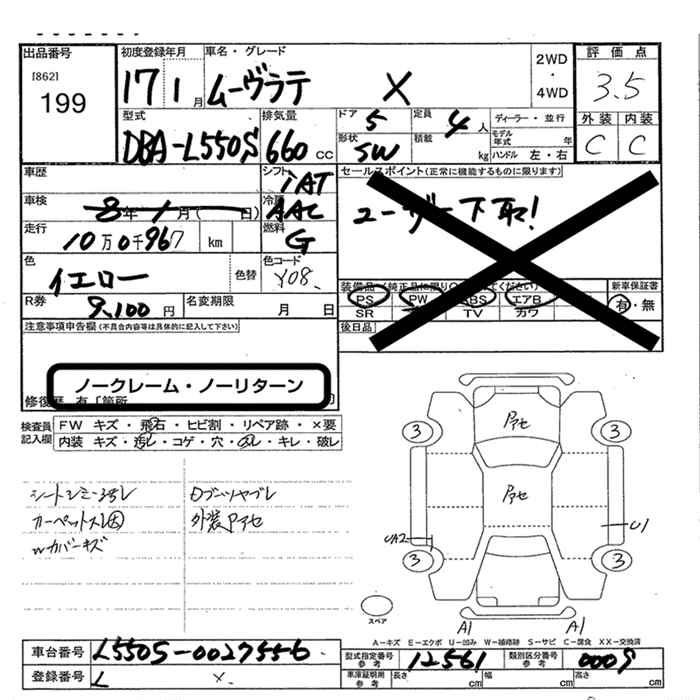 出品番号
[862]
199
初度登録年月 車名・グレード
17 1 月 ムーヴラテ X
2WD
・
4WD
評価点
3.5
外装 内装
C C
型式 排気量 ドア 定員 ディーラー・並行
DBA-L550S 660 CC 5 4 人
モデル年式 年
形状 積載
SW kg ハンドル 左・右
車歴 シフト セールスポイント(正常に機能するものに限ります)
IAT
車検 8年1月( 日) 冷房 AAC
ユーザー下取!
走行 10万0千967 km 燃料 G
色 イエロー 色替 色コード Y08
装備品(純正品に限り くてください) 新車保証書
PS PW ABS エアB 有・無
SR TV カワ
R券 9,100円 名変期限 月 日
後日品
注意事項申告欄(不具合内容等は具体的に記入して下さい)
ノークレーム・ノーリターン
修復歴 有「箇所
検査員記入欄 FW キズ・飛石・ヒビ割・リペア跡・×要
内装 キズ・汚レ・コゲ・穴・スレ・キレ・破レ
シートシミ・スレ Dブーツヤブレ
カーペットスレ 外装Pアセ
Wカバーキズ
Pアセ
Pアセ
3 3
3 3
UA2 U1
A1 A1
スペア
A-キズ E-エクボ U-凹み W-補修跡 S-サビ C-腐食 XX-交換済
車台番号 L550S-0027556
登録番号 L X
型式指定番号 参考 12561 類別区分番号 参考 0009
車庫証明用 参考 長さ cm 幅 cm 高さ cm